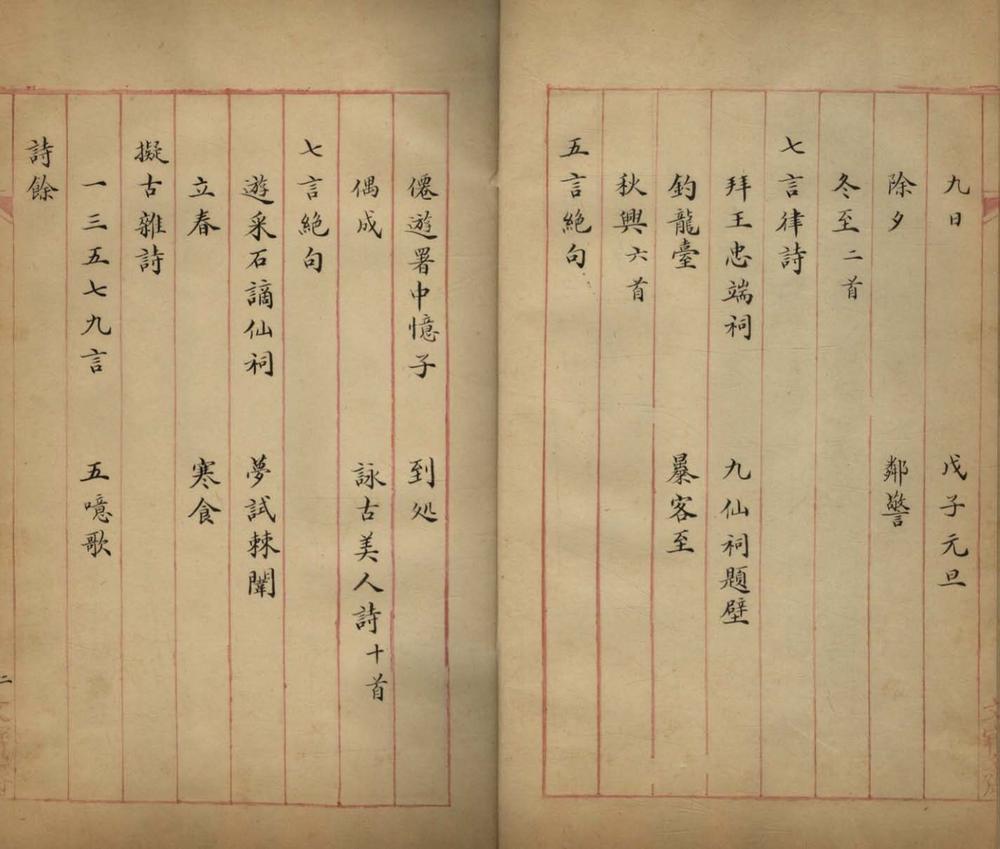 九日 戊子元旦
除夕 鄰警
冬至二首
七言律詩
拜王忠端祠 九仙祠題壁
釣龍臺 暴客至
秋興六首
五言絕句
僊遊署中憶子 到処
偶成 詠古美人詩十首
七言絕句
遊采石謫仙祠 夢試棘闈
立春 寒食
擬古雜詩
一三五七九言 五噫歌
詩餘
二